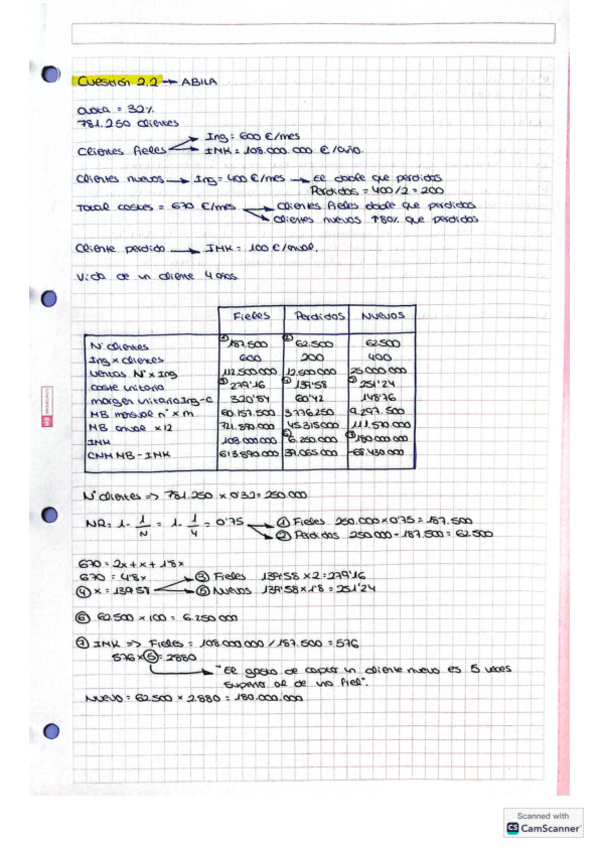 Cuestión 2.2 → ABILA
cuota = 32%
781.250 clientes
Clientes fieles → Ing = 600 €/mes
→ INK = 108.000.000 €/año.
Clientes nuevos → Ing = 400 €/mes → El doble que perdidos
Perdidos = 400/2 = 200
Total costes = 670 €/mes → Clientes fieles doble que perdidos
→ Clientes nuevos ↑80% que perdidos
Cliente perdido → INK = 100 €/anual.
Vida de un cliente 4 años.
Fieles Perdidos Nuevos
Nº clientes ① 187.500 ② 62.500 62.500
Ing x clientes 600 200 400
Ventas Nº x Ing 112.500.000 12.500.000 25.000.000
coste unitario ③ 279'16 ④ 139'58 ⑤ 251'24
margen unitario Ing-C 320'84 60'42 148'76
MB mensual nº x m 60.157.500 3.776.250 9.297.500
MB anual x12 721.890.000 45.315.000 111.570.000
INK 108.000.000 ⑥ 6.250.000 ⑦ 180.000.000
CNM MB - INK 613.890.000 39.065.000 -68.430.000
Nº clientes => 781.250 x 0'32 = 250.000
NR = 1 - 1/N = 1 - 1/4 = 0'75 → ① Fieles 250.000 x 0'75 = 187.500
→ ② Perdidos 250.000 - 187.500 = 62.500
670 = 2x + x + 1'8x
670 = 4'8x → ③ Fieles 139'58 x 2 = 279'16
④ x = 139'58 → ⑤ Nuevos 139'58 x 1'8 = 251'24
⑥ 62.500 x 100 = 6.250.000
⑦ INK => Fieles = 108.000.000 / 187.500 = 576
576 x 5 = 2880
→ "El gasto de captar un cliente nuevo es 5 veces
superior al de uno fiel".
Nuevo = 62.500 x 2.880 = 180.000.000
Scanned with
CS CamScanner